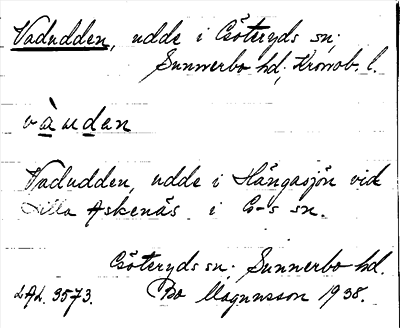 Vadudden, udde i Göteryds sn;
Sunnerbo hd; Kronob. l.
vàudan
Vadudden, udde i Hängasjön vid
Lilla Askenäs i G-s sn.
Göteryds sn; Sunnerbo hd.
LAL. 3573. Bo Magnusson 1938.